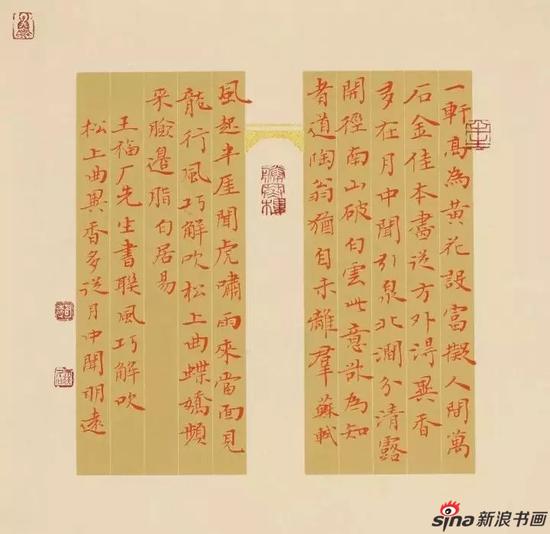 一軒高為黃花設富擬人間萬
石金佳本盡從方外得異香
多在月中聞引泉北澗分清露
開徑南山破白雲此意欲為知
者道陶翁猶自未離羣蘇軾
風起半厓聞虎嘯雨來當面見
龍行風巧解吹松上曲蝶嬌頻
采臉邊脂白居易
王福厂先生書聯風巧解吹
松上曲異香多從月中聞明遠
sina新浪书画